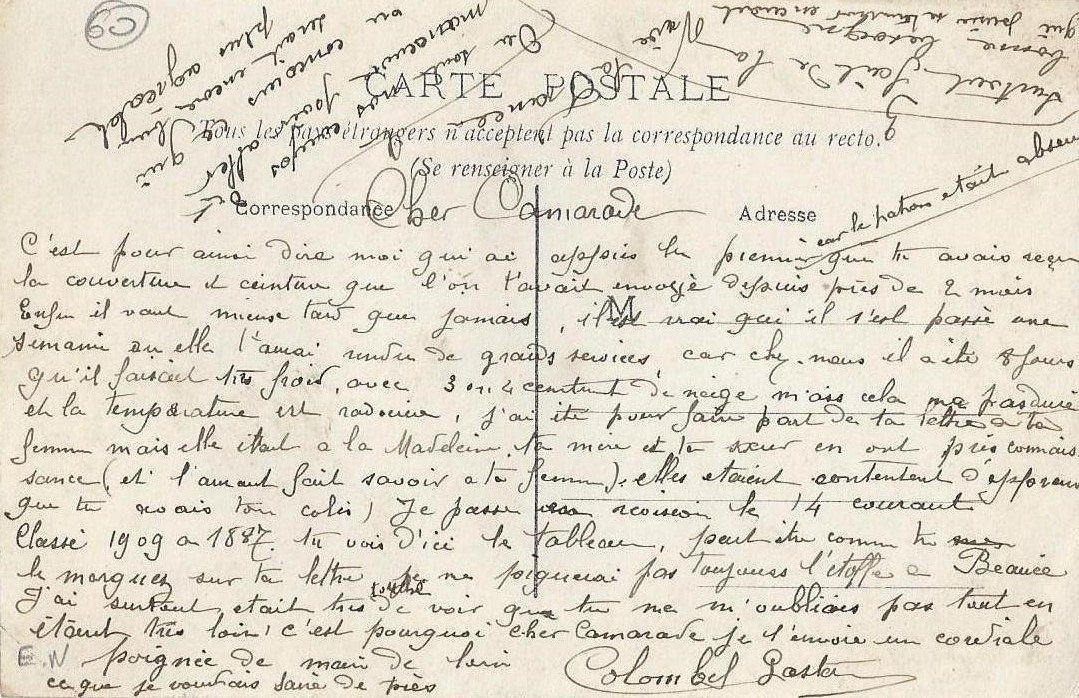 69
CARTE POSTALE
Tous les pays étrangers n'acceptent pas la correspondance au recto.
(Se renseigner à la Poste)
Correspondance
Adresse
M
Cher Camarade
C'est pour ainsi dire moi qui ai appris le premier que tu avais reçu
car le patron etait absent
la couverture et ceinture que l'on t'avait envoyè depuis près de 2 mois
Enfin il vaut mieux tard que jamais, il est vrai qui il s'est passè une
semaine ou elle t'aurai rendu de grands services car chez nous il a ète 8 jours
qu'il faisait très froid, avec 3 ou 4 centimt de neige mais cela na pas durè
et la tempèrature est radoucie, j'ai ète pour faire part de ta lettre a ta
femme mais elle ètait a la Madeleine, ta mere et ta sœur en ont pris connais
sance (et l'auront fait savoir a ta femme), elles etaient contentent d'apprendre
que tu avais ton colis) Je passe la revision le 14 courant
Classe 1909 a 1887. tu vois d'ici le tableau, peut ètre comme tu
le marquez sur ta lettre je ne piquerai pas toujours l'étoffe a Beaucé
J'ai surtout etait très touché de voir que tu ne m'oubliais pas tout en
ètant très loin! c'est pourquoi cher Camarade je t'envoie un cordiale
poignèe de main de loin
ce que je voudrais faire de près
Colombel Gaston
E.W
Surtout fait de la
bonne besogne
qui
en
Du
la
tout
nos
jours
aller
qui
serait encore
plus agreable